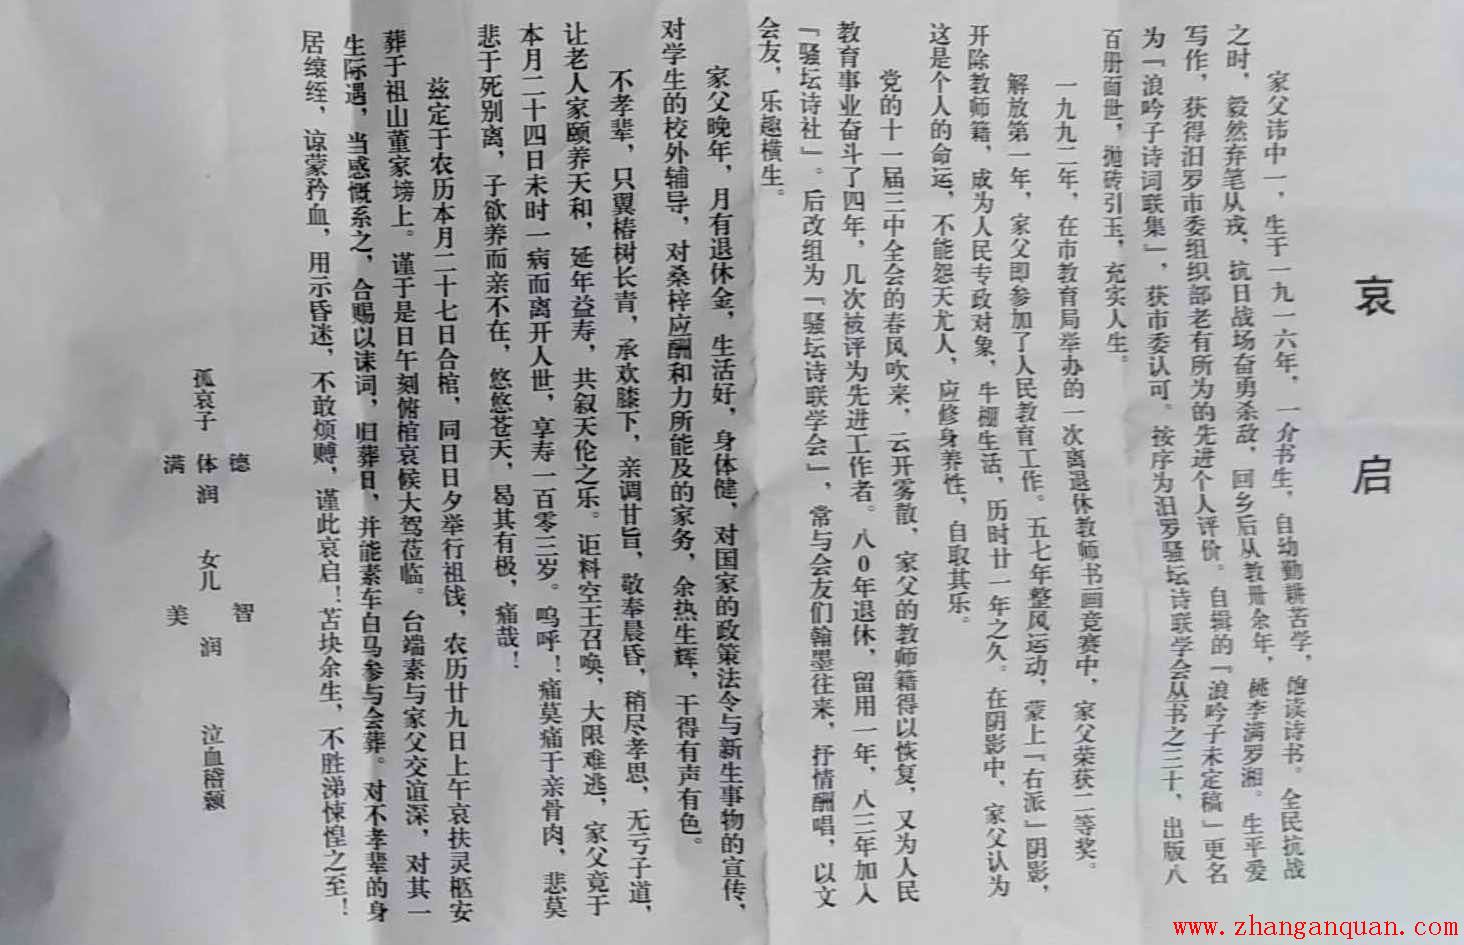 哀启
家父讳中一，生于一九一六年，一介书生，自幼勤耕苦学，饱读诗书。全民抗战
之时，毅然弃笔从戎，抗日战场奋勇杀敌，回乡后从教卅余年，桃李满罗湘。生平爱
写作，获得汨罗市委组织部老有所为的先进个人评价。自辑的『浪吟子未定稿』更名
为『浪吟子诗词联集』，获市委认可。按序为汨罗骚坛诗联学会丛书之三十，出版八
百册面世，抛砖引玉，充实人生。
一九九二年，在市教育局举办的一次离退休教师书画竞赛中，家父荣获二等奖。
解放第一年，家父即参加了人民教育工作。五七年整风运动，蒙上『右派』阴影，
开除教师籍，成为人民专政对象，牛棚生活，历时廿一年之久。在阴影中，家父认为
这是个人的命运，不能怨天尤人，应修身养性，自取其乐。
党的十一届三中全会的春风吹来，云开雾散，家父的教师籍得以恢复，又为人民
教育事业奋斗了四年，几次被评为先进工作者。八0年退休，留用一年，八三年加入
『骚坛诗社』。后改组为『骚坛诗联学会』，常与会友们翰墨往来，抒情酬唱，以文
会友，乐趣横生。
家父晚年，月有退休金，生活好，身体健，对国家的政策法令与新生事物的宣传，
对学生的校外辅导，对桑梓应酬和力所能及的家务，余热生辉，干得有声有色。
不孝辈，只翼椿树长青，承欢膝下，亲调甘旨，敬奉晨昏，稍尽孝思，无亏子道，
让老人家颐养天和，延年益寿，共叙天伦之乐。讵料空王召唤，大限难逃，家父竟于
本月二十四日未时一病而离开人世，享寿一百零三岁。呜呼！痛莫痛于亲骨肉，悲莫
悲于死别离，子欲养而亲不在，悠悠苍天，曷其有极，痛哉！
兹定于农历本月二十七日合棺，同日日夕举行祖饯，农历廿九日上午哀扶灵柩安
葬于祖山董家塝上。谨于是日午刻俯棺哀候大驾莅临。台端素与家父交谊深，对其一
生际遇，当感慨系之，合赐以诔词，归葬日，并能素车白马参与会葬。对不孝辈的身
居缞绖，谅蒙矜血，用示昏迷，不敢烦赙，谨此哀启！苫块余生，不胜涕悚惶之至！
孤哀子 德 体 满 润 女儿 智 美 润 泣血稽颡
www.zhanganquan.com